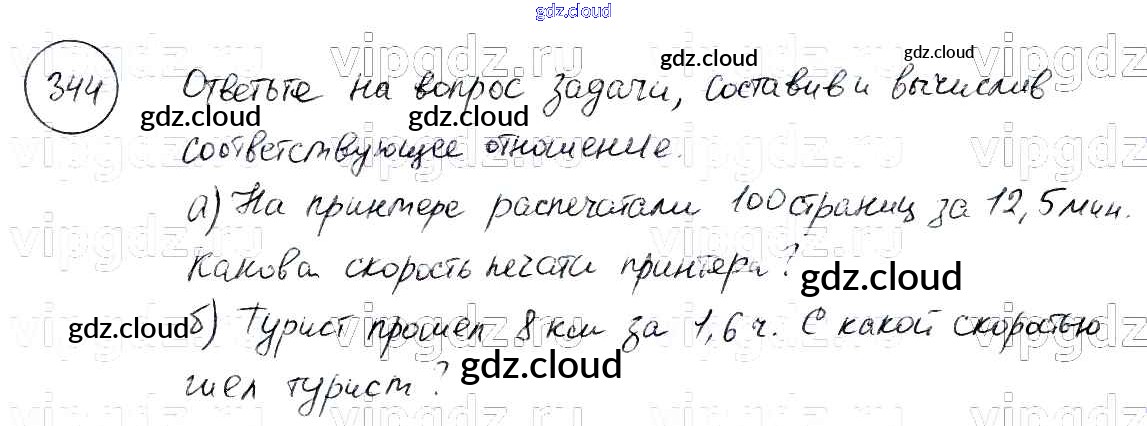 gdz.cloud
vipgdz.ru vipgdz.ru vipgdz.ru
gdz.cloud gdz.cloud
344 Ответьте на вопрос задачи, составив и вычислив
gdz.cloud gdz.cloud
соответствующее отношение.
vipgdz.ru vipgdz.ru vipgdz.ru
а) На принтере распечатали 100 страниц за 12,5 мин.
vipgdz.ru vipgdz.ru vipgdz.ru
Какова скорость печати принтера?
gdz.cloud
б) Турист прошел 8 км за 1,6 ч. С какой скоростью
gdz.cloud
vipgdz.ru vipgdz.ru vipgdz.ru
gdz.cloud
шел турист?